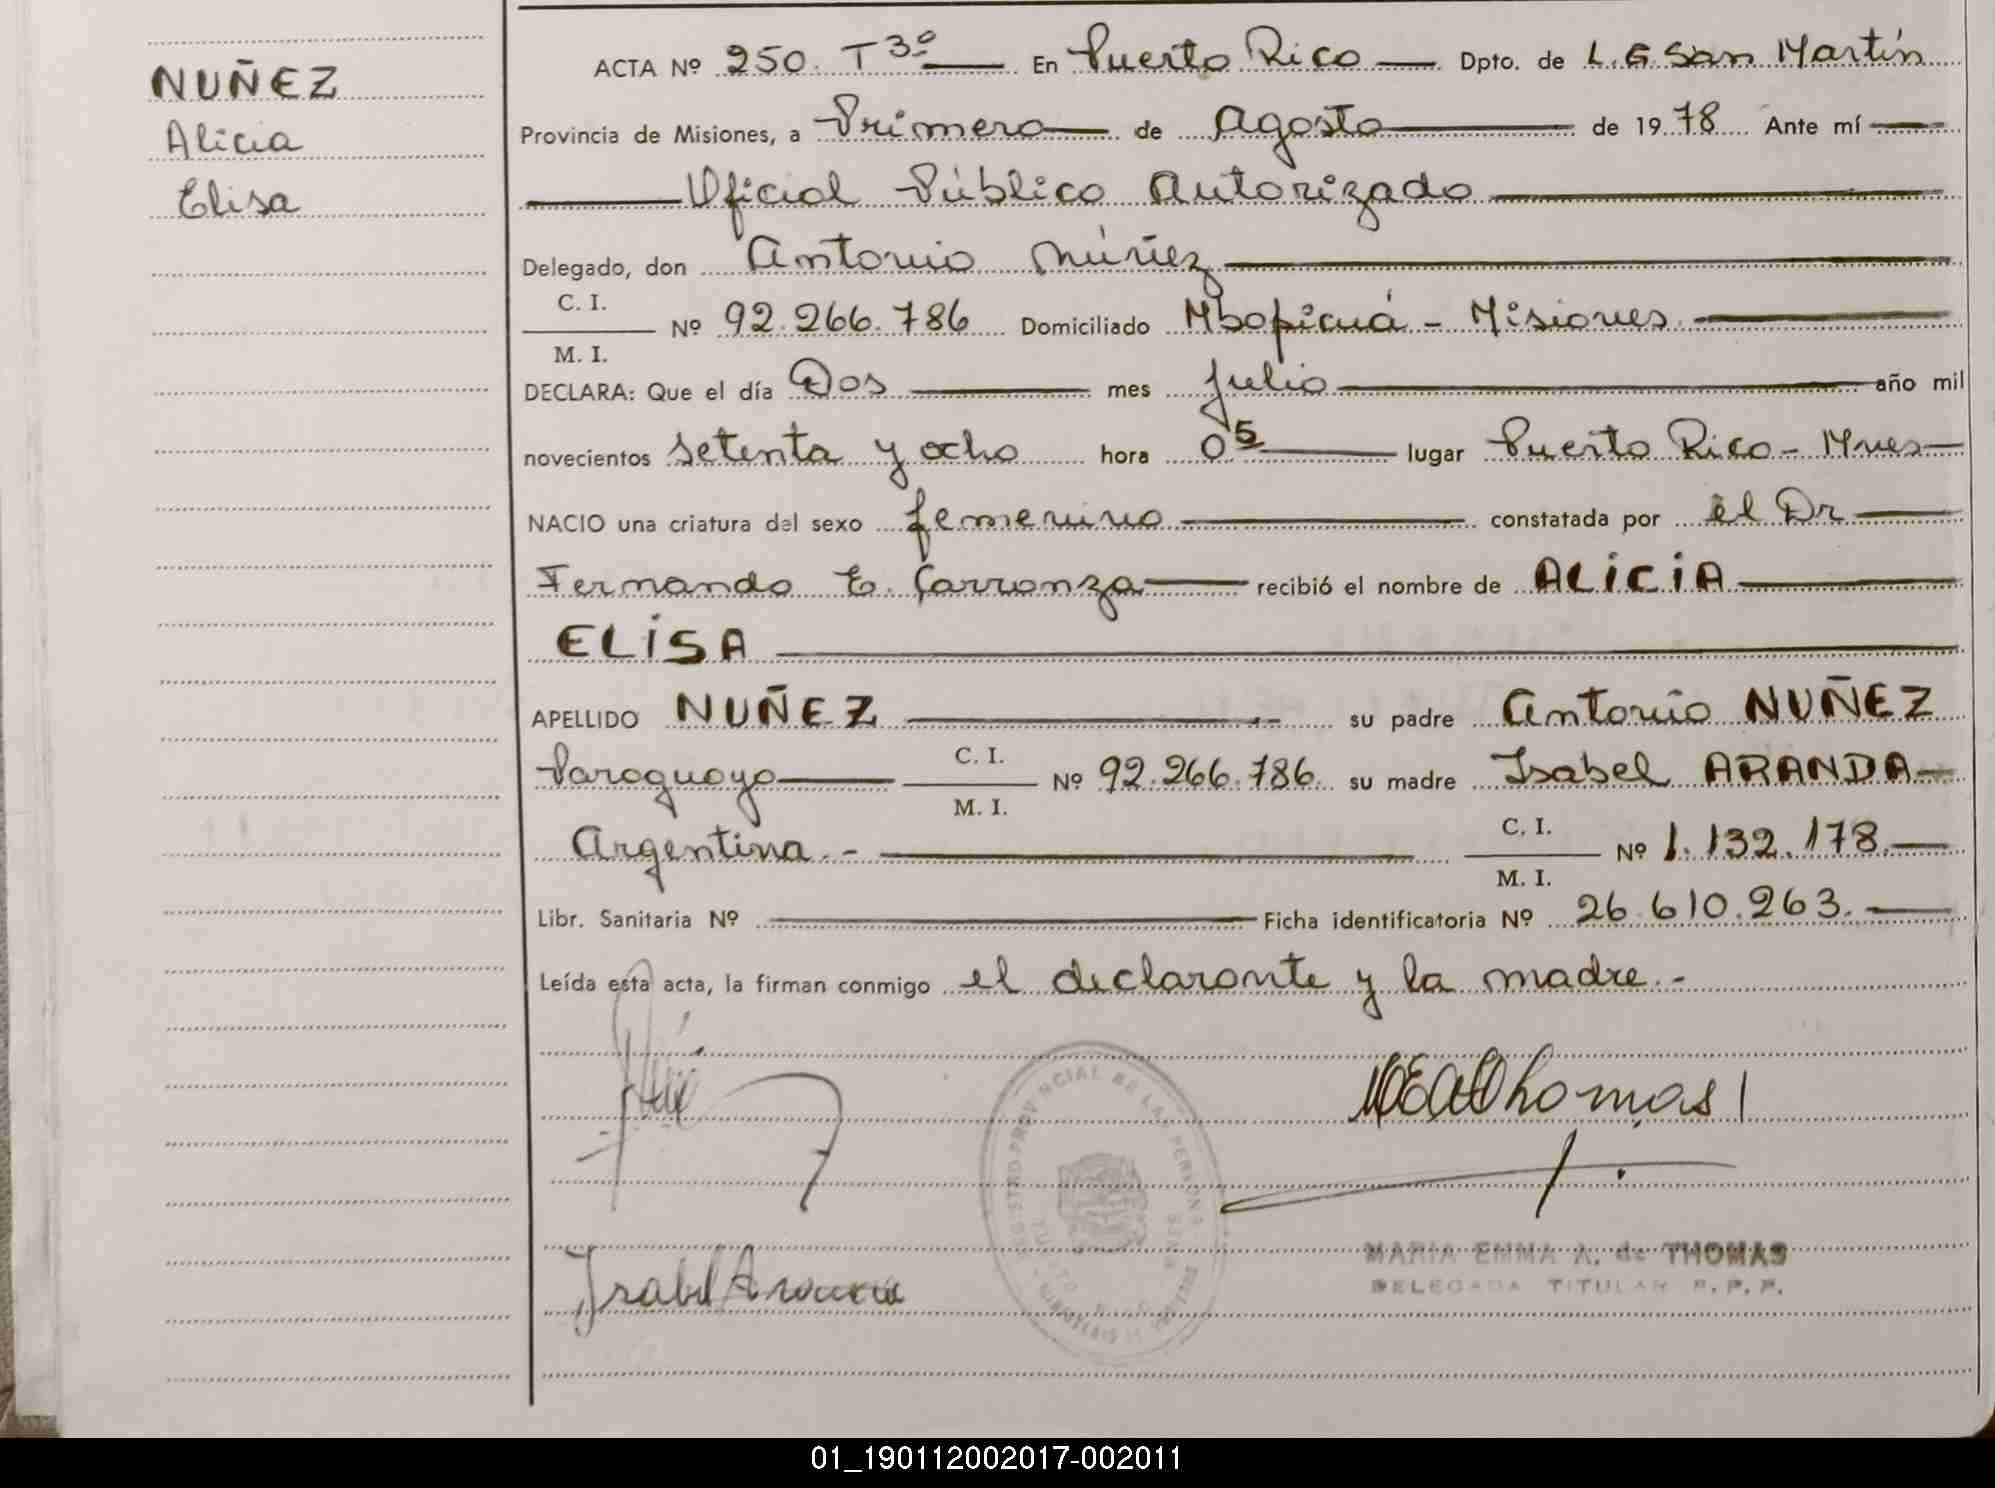 NUÑEZ
Alicia
Elisa
ACTA Nº 250. T 3º En Puerto Rico Dpto. de L.G. San Martín
Provincia de Misiones, a Primero de Agosto de 1978 Ante mí
Oficial Público Autorizado
Delegado, don Antonio Núñez
C. I.
M. I.
Nº 92.266.786 Domiciliado Mbopicuá - Misiones
DECLARA: Que el día Dos mes julio año mil
novecientos setenta y ocho hora 05 lugar Puerto Rico - Mnes
NACIO una criatura del sexo femenino constatada por el Dr
Fernando E. Carronza recibió el nombre de ALICIA
ELISA
APELLIDO NUÑEZ su padre Antonio NUÑEZ
Paraguayo C. I. M. I. Nº 92.266.786. su madre Isabel ARANDA
Argentina.- C. I. M. I. Nº 1.132.178.
Libr. Sanitaria Nº Ficha identificatoria Nº 26.610.263.
Leída esta acta, la firman conmigo el declarante y la madre.-
MEAdThomas
REGISTRO PROVINCIAL DE LAS PERSONAS
MARIA EMMA A. de THOMAS
DELEGADA TITULAR R. P. P.
Isabel Aranda
01_190112002017-002011